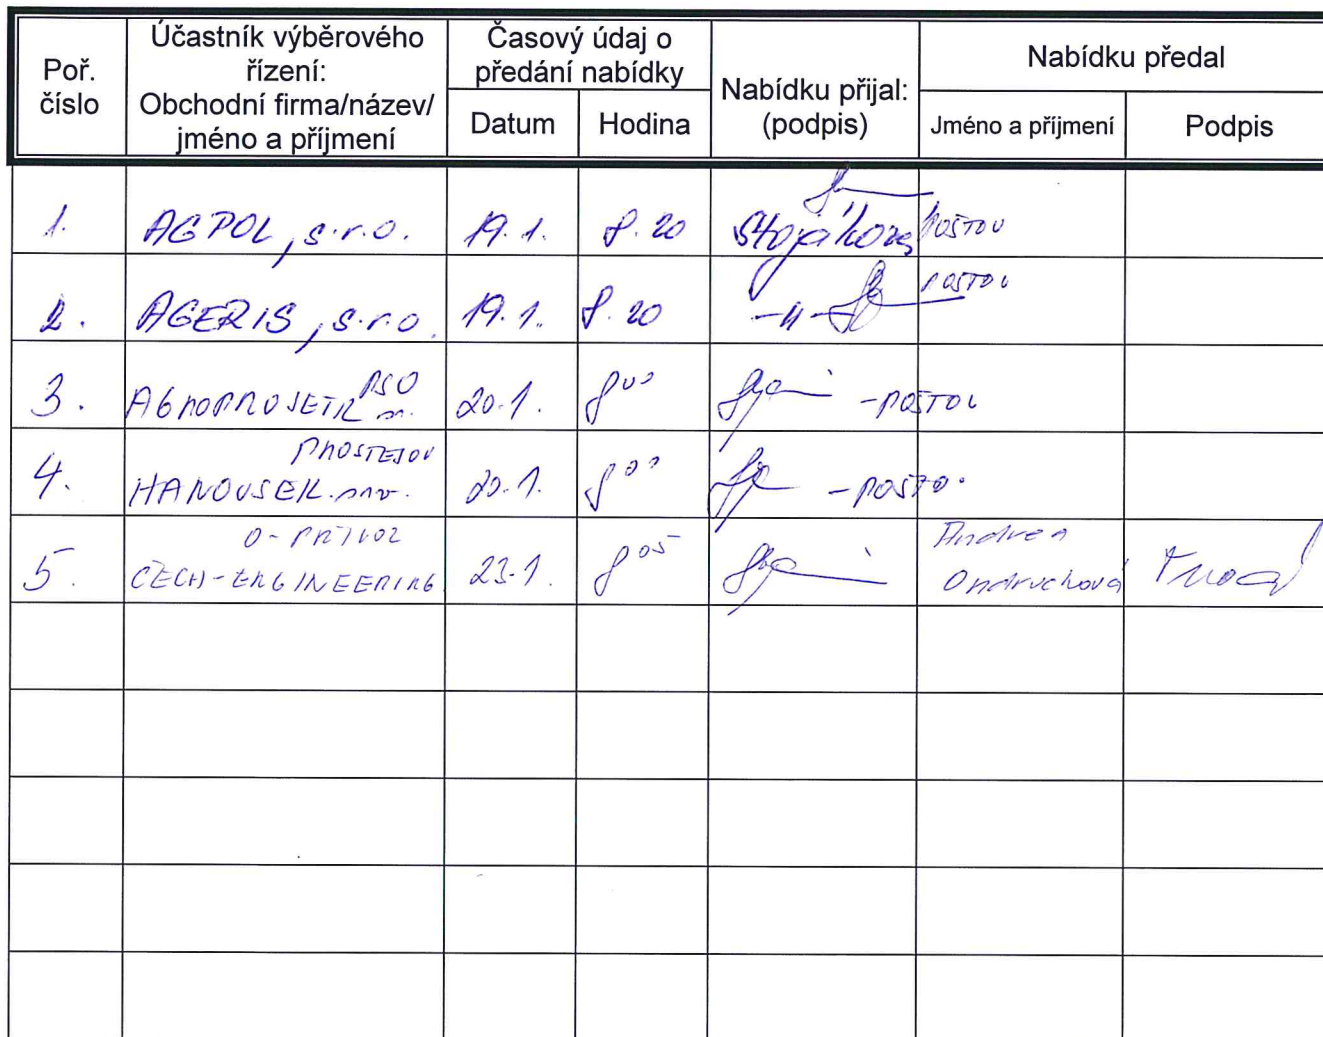 Poř. číslo
Účastník výběrového řízení:
Obchodní firma/název/
jméno a příjmení
Časový údaj o
předání nabídky
Datum
Hodina
Nabídku přijal:
(podpis)
Nabídku předal
Jméno a příjmení
Podpis
1. AGPOL, s.r.o. 19.1. 8.20 Stojáková POŠTOU
2. AGERIS, s.r.o. 19.1. 8.20 -11- POŠTOU
3. AGROPROJEKT PSO 20.1. 8 00 - POŠTOU
PROSTEJOV
4. HANOUSEK 20.1. 8 00 - POŠTO.
O-PŘÍVOZ
5. CZECH-ENGINEERING 23.1. 8 05 Andrea
Ondruchová